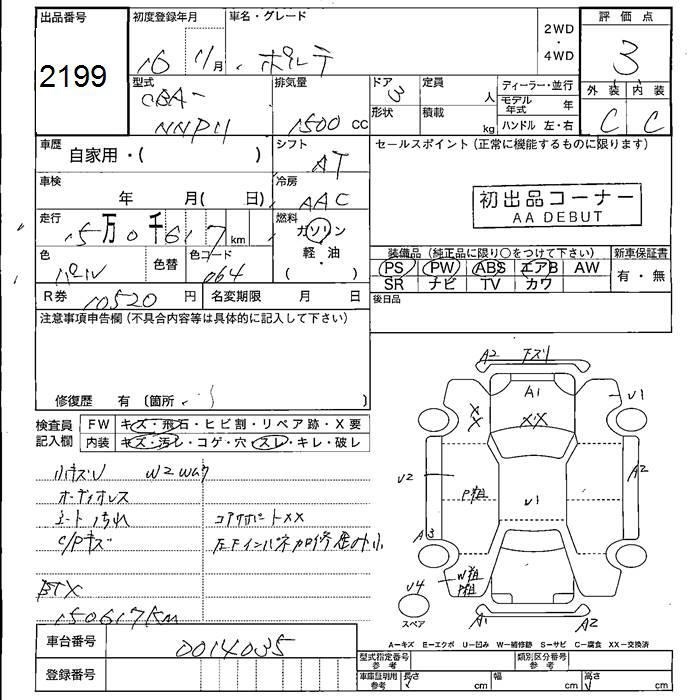 出品番号 初度登録年月 車名・グレード 2WD・4WD 評価点
2199 16年 11月 ポルテ 3
型式 CBA-NNP11 排気量 1500 CC ドア 3 形状 定員 人 積載 kg ディーラー・並行 モデル年式 年 ハンドル 左・右 外装 内装
C C
車歴 自家用・( ) シフト AT セールスポイント(正常に機能するものに限ります)
車検 年 月( 日) 冷房 AAC 初出品コーナー
AA DEBUT
走行 15万0千617 km 燃料 ガソリン
軽・油
( )
装備品(純正品に限り○をつけて下さい) 新車保証書
色 パール 色替 色コード 064 PS PW ABS エアB AW 有・無
SR ナビ TV カワ
R券 10520 円 名変期限 月 日 後日品
注意事項申告欄(不具合内容等は具体的に記入して下さい)
修復歴 有 (箇所 )
検査員記入欄 FW キズ・飛石・ヒビ割・リペア跡・X要
内装 キズ・汚レ・コゲ・穴・スレ・キレ・破レ
オーディオレス
シート汚れ コアサポートXX
C/Pキズ
150617Km
車台番号 0014035
登録番号
A2 下スリ
A1
XX XX
U1
U2 P粗 U1 A2
A3
U4 W粗
P粗
スペア A1 A2
A-キズ E-エクボ U-凹み W-補修跡 S-サビ C-腐食 XX-交換済
型式指定番号 参考 類別区分番号 参考
車庫証明用 参考 長さ cm 幅 cm 高さ cm